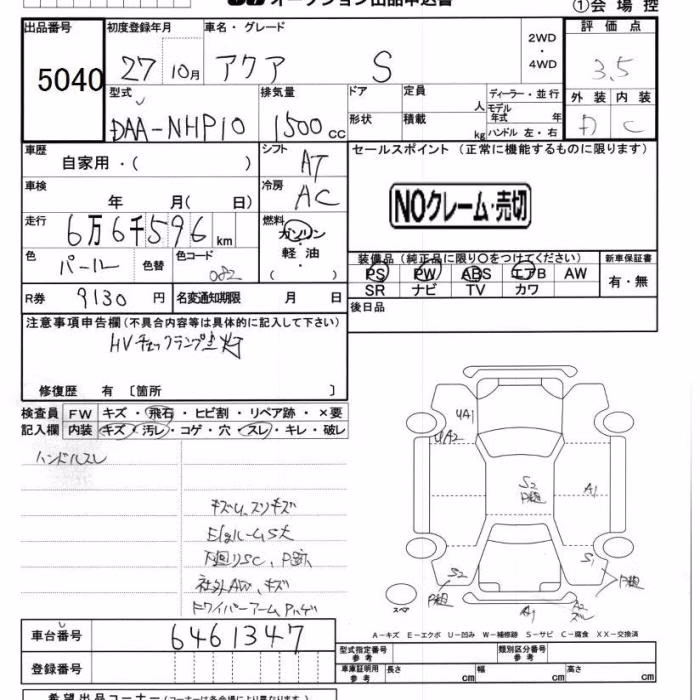 オークション出品申込書
①会場控
出品番号 初度登録年月 車名・グレード 2WD・4WD 評価点
5040 27 10月 アクア S 3.5
型式 排気量 ドア 定員 人 ディーラー・並行 外装 内装
DAA-NHP10 1500cc 形状 積載 kg モデル年式 年 ハンドル 左・右 A C
車歴 自家用・( ) シフト AT セールスポイント (正常に機能するものに限ります)
車検 年 月( 日) 冷房 AC
NOクレーム・売切
走行 6万6千596km 燃料 ガソリン・軽油・( )
色 パール 色替 色コード 082
装備品 (純正品に限り〇をつけてください) 新車保証書
PS PW ABS エアB AW 有・無
SR ナビ TV カワ
R券 9130円 名変通知期限 月 日 後日品
注意事項申告欄 (不具合内容等は具体的に記入して下さい)
HVチェックランプ点灯
修復歴 有 〔箇所 〕
検査員 FW キズ・飛石・ヒビ割・リペア跡・×要
記入欄 内装 キズ・汚レ・コゲ・穴・スレ・キレ・破レ
ハンドルスレ
キズU、スリキズ
Egルーム S大
下廻りSC、P跡
社外AW、キズ
ドワイパーアームPハゲ
UA1
UA2
S2
P粗
A1
S2
P粗
S1
P粗
A1
A2
スレ
スペア
A－キズ E－エクボ U－凹み W－補修跡 S－サビ C－腐食 XX－交換済
車台番号 6461347
型式指定番号 参考 類別区分番号 参考
登録番号 車庫証明用 参考 長さ cm 幅 cm 高さ cm
希望出品コーナー (コーナーは各会場により異なります)